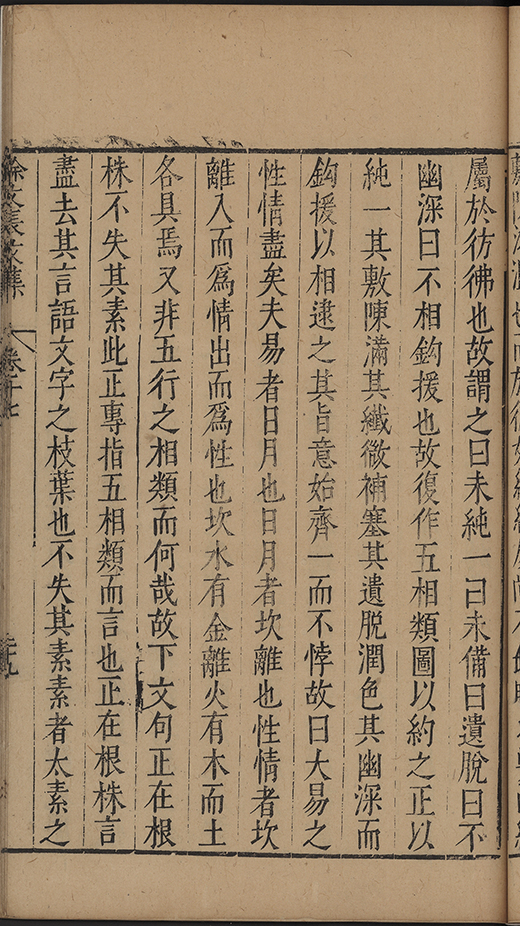 屬於彷彿也故謂之曰未純一曰未備曰遺脫曰不
幽深曰不相鈎援也故復作五相類圖以約之正以
純一其敷陳滿其纖微補塞其遺脫潤色其幽深而
鈎援以相逮之其旨意始齊一而不悖故曰大易之
性情盡矣夫易者日月也日月者坎離也性情者坎
離入而爲情出而爲性也坎水有金離火有木而土
各具焉又非五行之相類而何哉故下文句正在根
株不失其素此正專指五相類而言也正在根株言
盡去其言語文字之枝葉也不失其素素者太素之
徐文長文集
卷十七